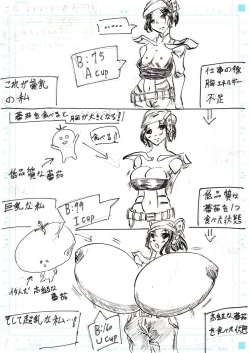 .....
B:75
A cup
これが貧乳
の私
仕事の後
胸エネルギー
不足
蕃茄を食べると胸が大きくなる!
食べる!
低品質な
蕃茄
低品質な
蕃茄を1つ
食べた状態
巨乳な私
B:99
I cup
蕃茄
高級な蕃茄
を食べた状態
そして超乳な私…!
B:160
U cup